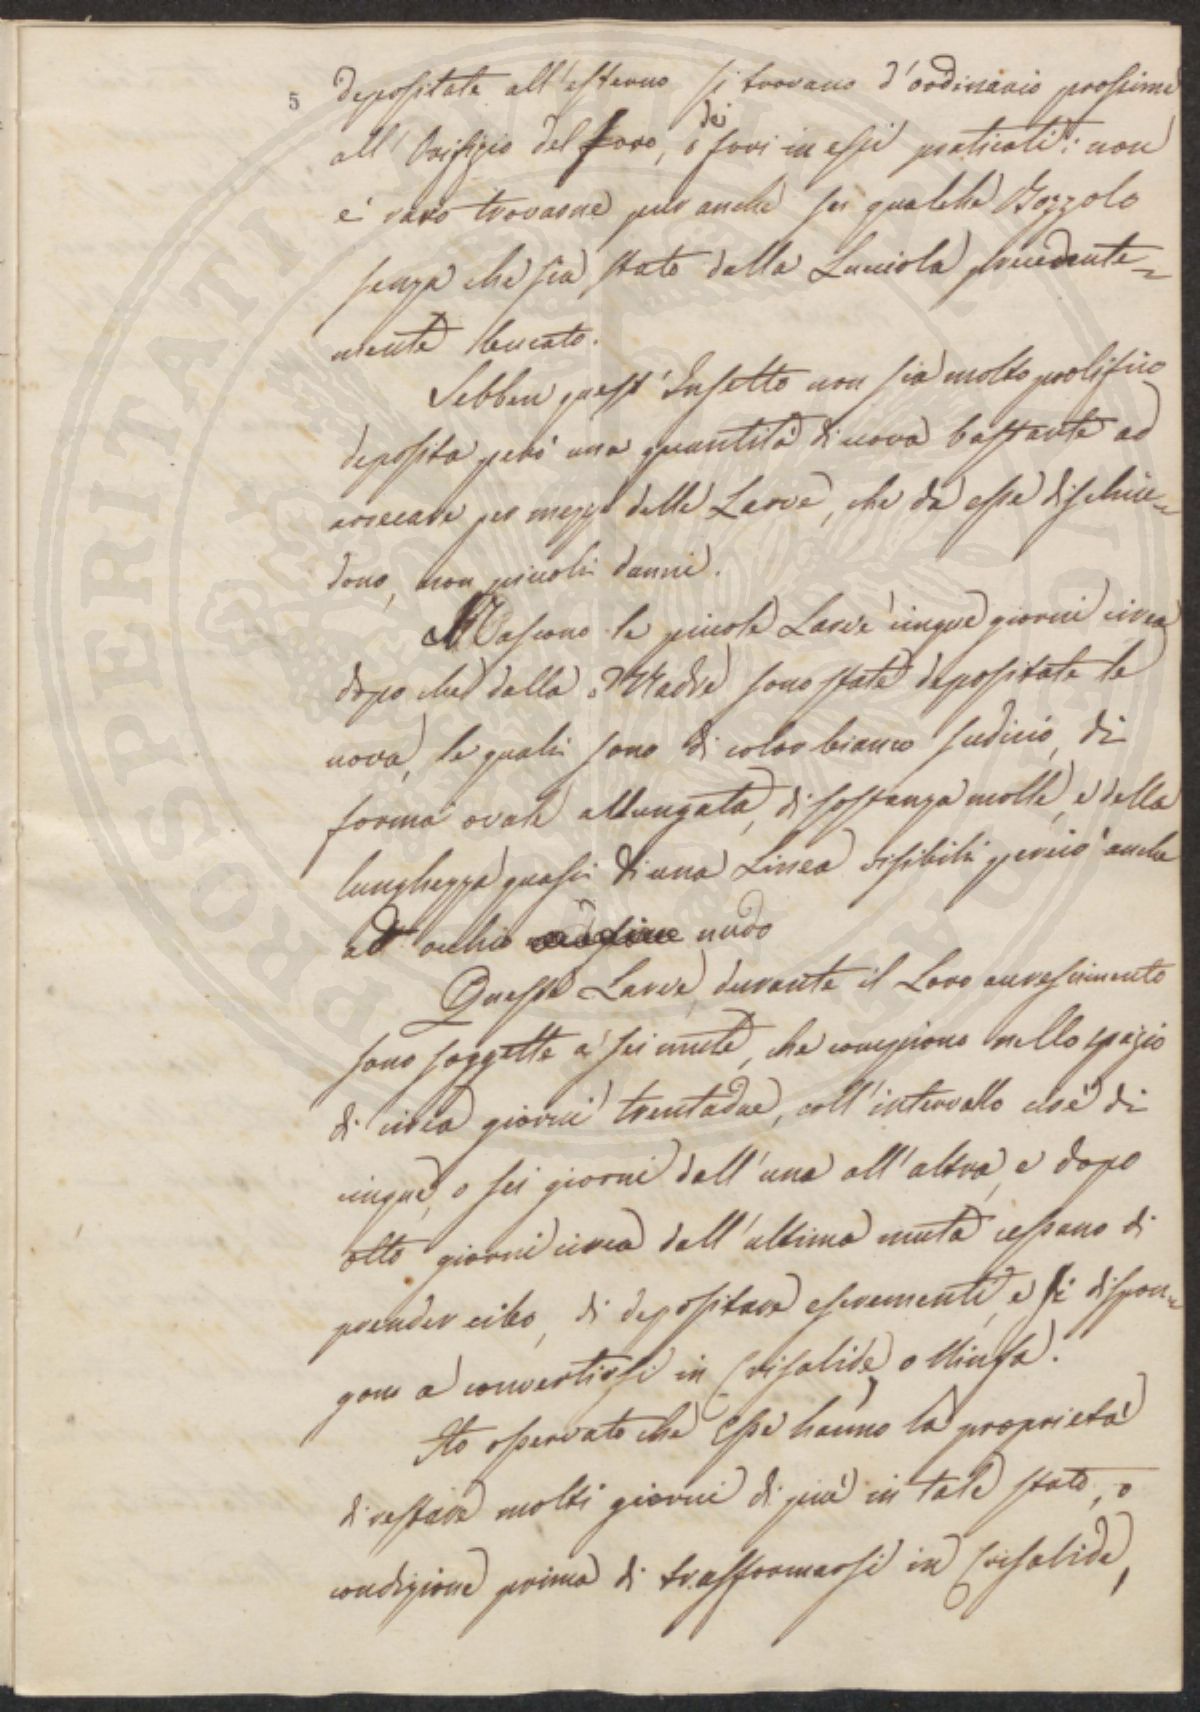 5
depositate all'esterno si trovano d'ordinario prossime
all'Orifizio del foro, o dei fori in essi praticati: non
è raro trovarne pur anche su qualche Bozzolo
senza che sia stato dalla Lucciola precedente=
mente bucato.
Sebben quest'Insetto non sia molto prolifico
deposita però una quantità di uova bastante ad
arrecare per mezzo delle Larve, che da esse dischiu=
dono, non piccoli danni.
Nascono le piccole Larve cinque giorni circa
dopo che dalla Madre sono state depositate le
uova, le quali sono di color bianco sudicio, di
forma ovale allungata, di sostanza molle, e della
lunghezza quasi di una Linea visibili perciò anche
ad occhio nudo
Queste Larve durante il Loro accrescimento
sono soggette a sei mute, che compiono nello spazio
di circa giorni trentadue, coll'intervallo cioè di
cinque, o sei giorni dall'una all'altra, e dopo
otto giorni circa dall'ultima muta cessano di
prender cibo, di depositare escrementi, e si dispon=
gono a convertirsi in Crisalide, o Ninfa.
Ho osservato che Esse hanno la proprietà
di restare molti giorni di più in tale stato, o
condizione prima di trasformarsi in Crisalide,
PROSPERITATI PUBLICAE